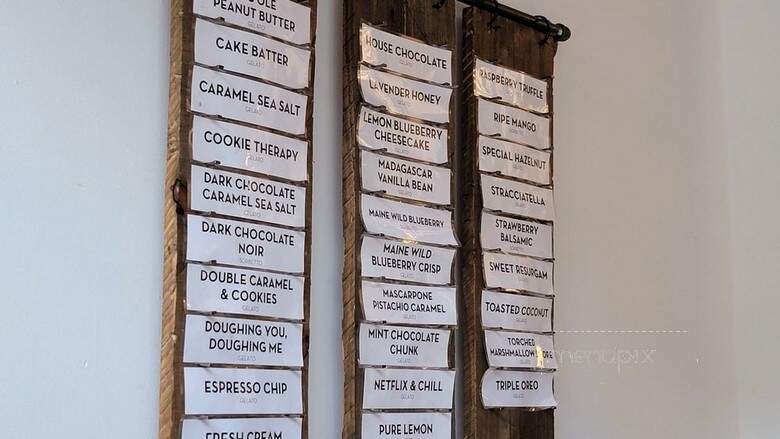 PEANUT BUTTER
GELATO
CAKE BATTER
GELATO
CARAMEL SEA SALT
GELATO
COOKIE THERAPY
GELATO
DARK CHOCOLATE
CARAMEL SEA SALT
GELATO
DARK CHOCOLATE
NOIR
SORBETTO
DOUBLE CARAMEL
& COOKIES
GELATO
DOUGHING YOU,
DOUGHING ME
GELATO
ESPRESSO CHIP
GELATO
FRESH CREAM
HOUSE CHOCOLATE
GELATO
LAVENDER HONEY
GELATO
LEMON BLUEBERRY
CHEESECAKE
GELATO
MADAGASCAR
VANILLA BEAN
GELATO
MAINE WILD BLUEBERRY
MAINE WILD
BLUEBERRY CRISP
GELATO
MASCARPONE
PISTACHIO CARAMEL
GELATO
MINT CHOCOLATE
CHUNK
GELATO
NETFLIX & CHILL
GELATO
PURE LEMON
RASPBERRY TRUFFLE
GELATO
RIPE MANGO
SORBETTO
SPECIAL HAZELNUT
GELATO
STRACCIATELLA
GELATO
STRAWBERRY
BALSAMIC
GELATO
SWEET RESURGAM
GELATO
TOASTED COCONUT
GELATO
TORCHED
MARSHMALLOW
GELATO
TRIPLE OREO
GELATO
menupix